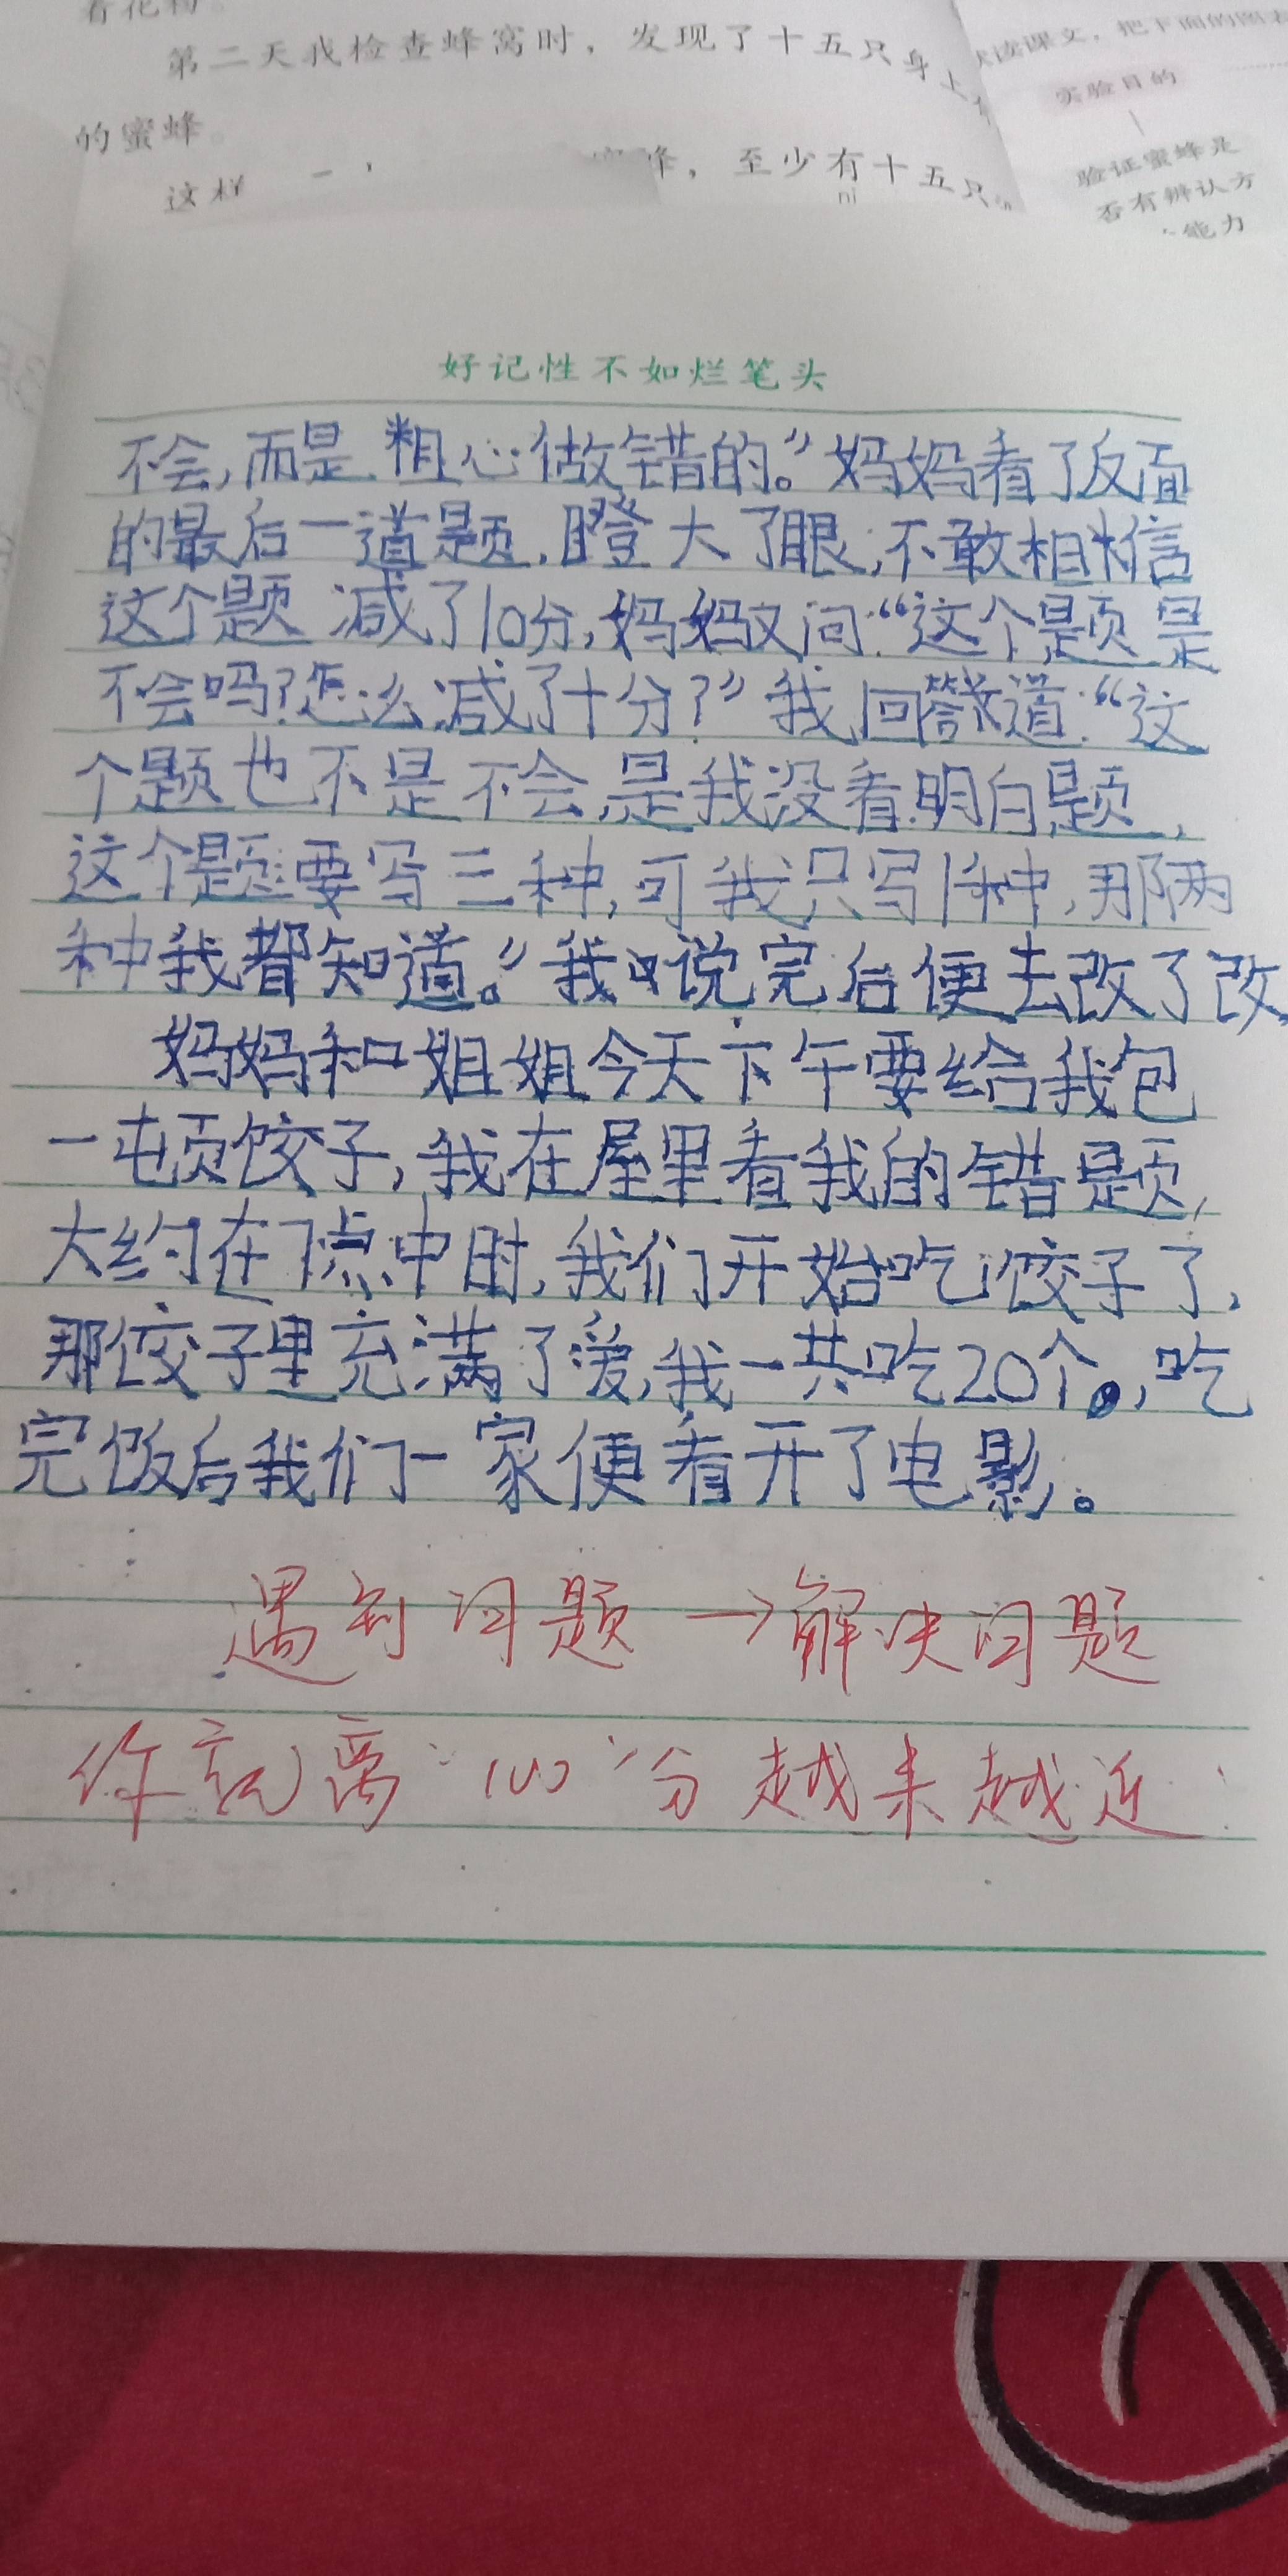 看花粉。
第二天我检查蜂窝时，发现了十五只身上
的蜜蜂
这样
蜂，至少有十五只
ni
读课文，把下面的图表
实验目的
验证蜜蜂是
否有辨认方
能力
好记性不如烂笔头
不会,而是粗心做错的。”妈妈看了反面
的最后一道题,瞪大了眼,不敢相信
这个题减了10分,妈妈又问:“这个题是
不会吗?怎么减了十分?”我回答道:“这
个题也不是不会,是我没看明白题,
这个题要写三种,可我只写1种,那两
种我都知道。”我说完后便去改了改
妈妈和姐姐今天下午要给我包
一顿饺子,我在屋里看我的错题,
大约在1点中时,我们开始吃饺子了,
那饺子里充满了爱,我一共吃20个,吃
完饭后我们一家便看开了电影。
遇到问题→解决问题
你就离100分越来越近